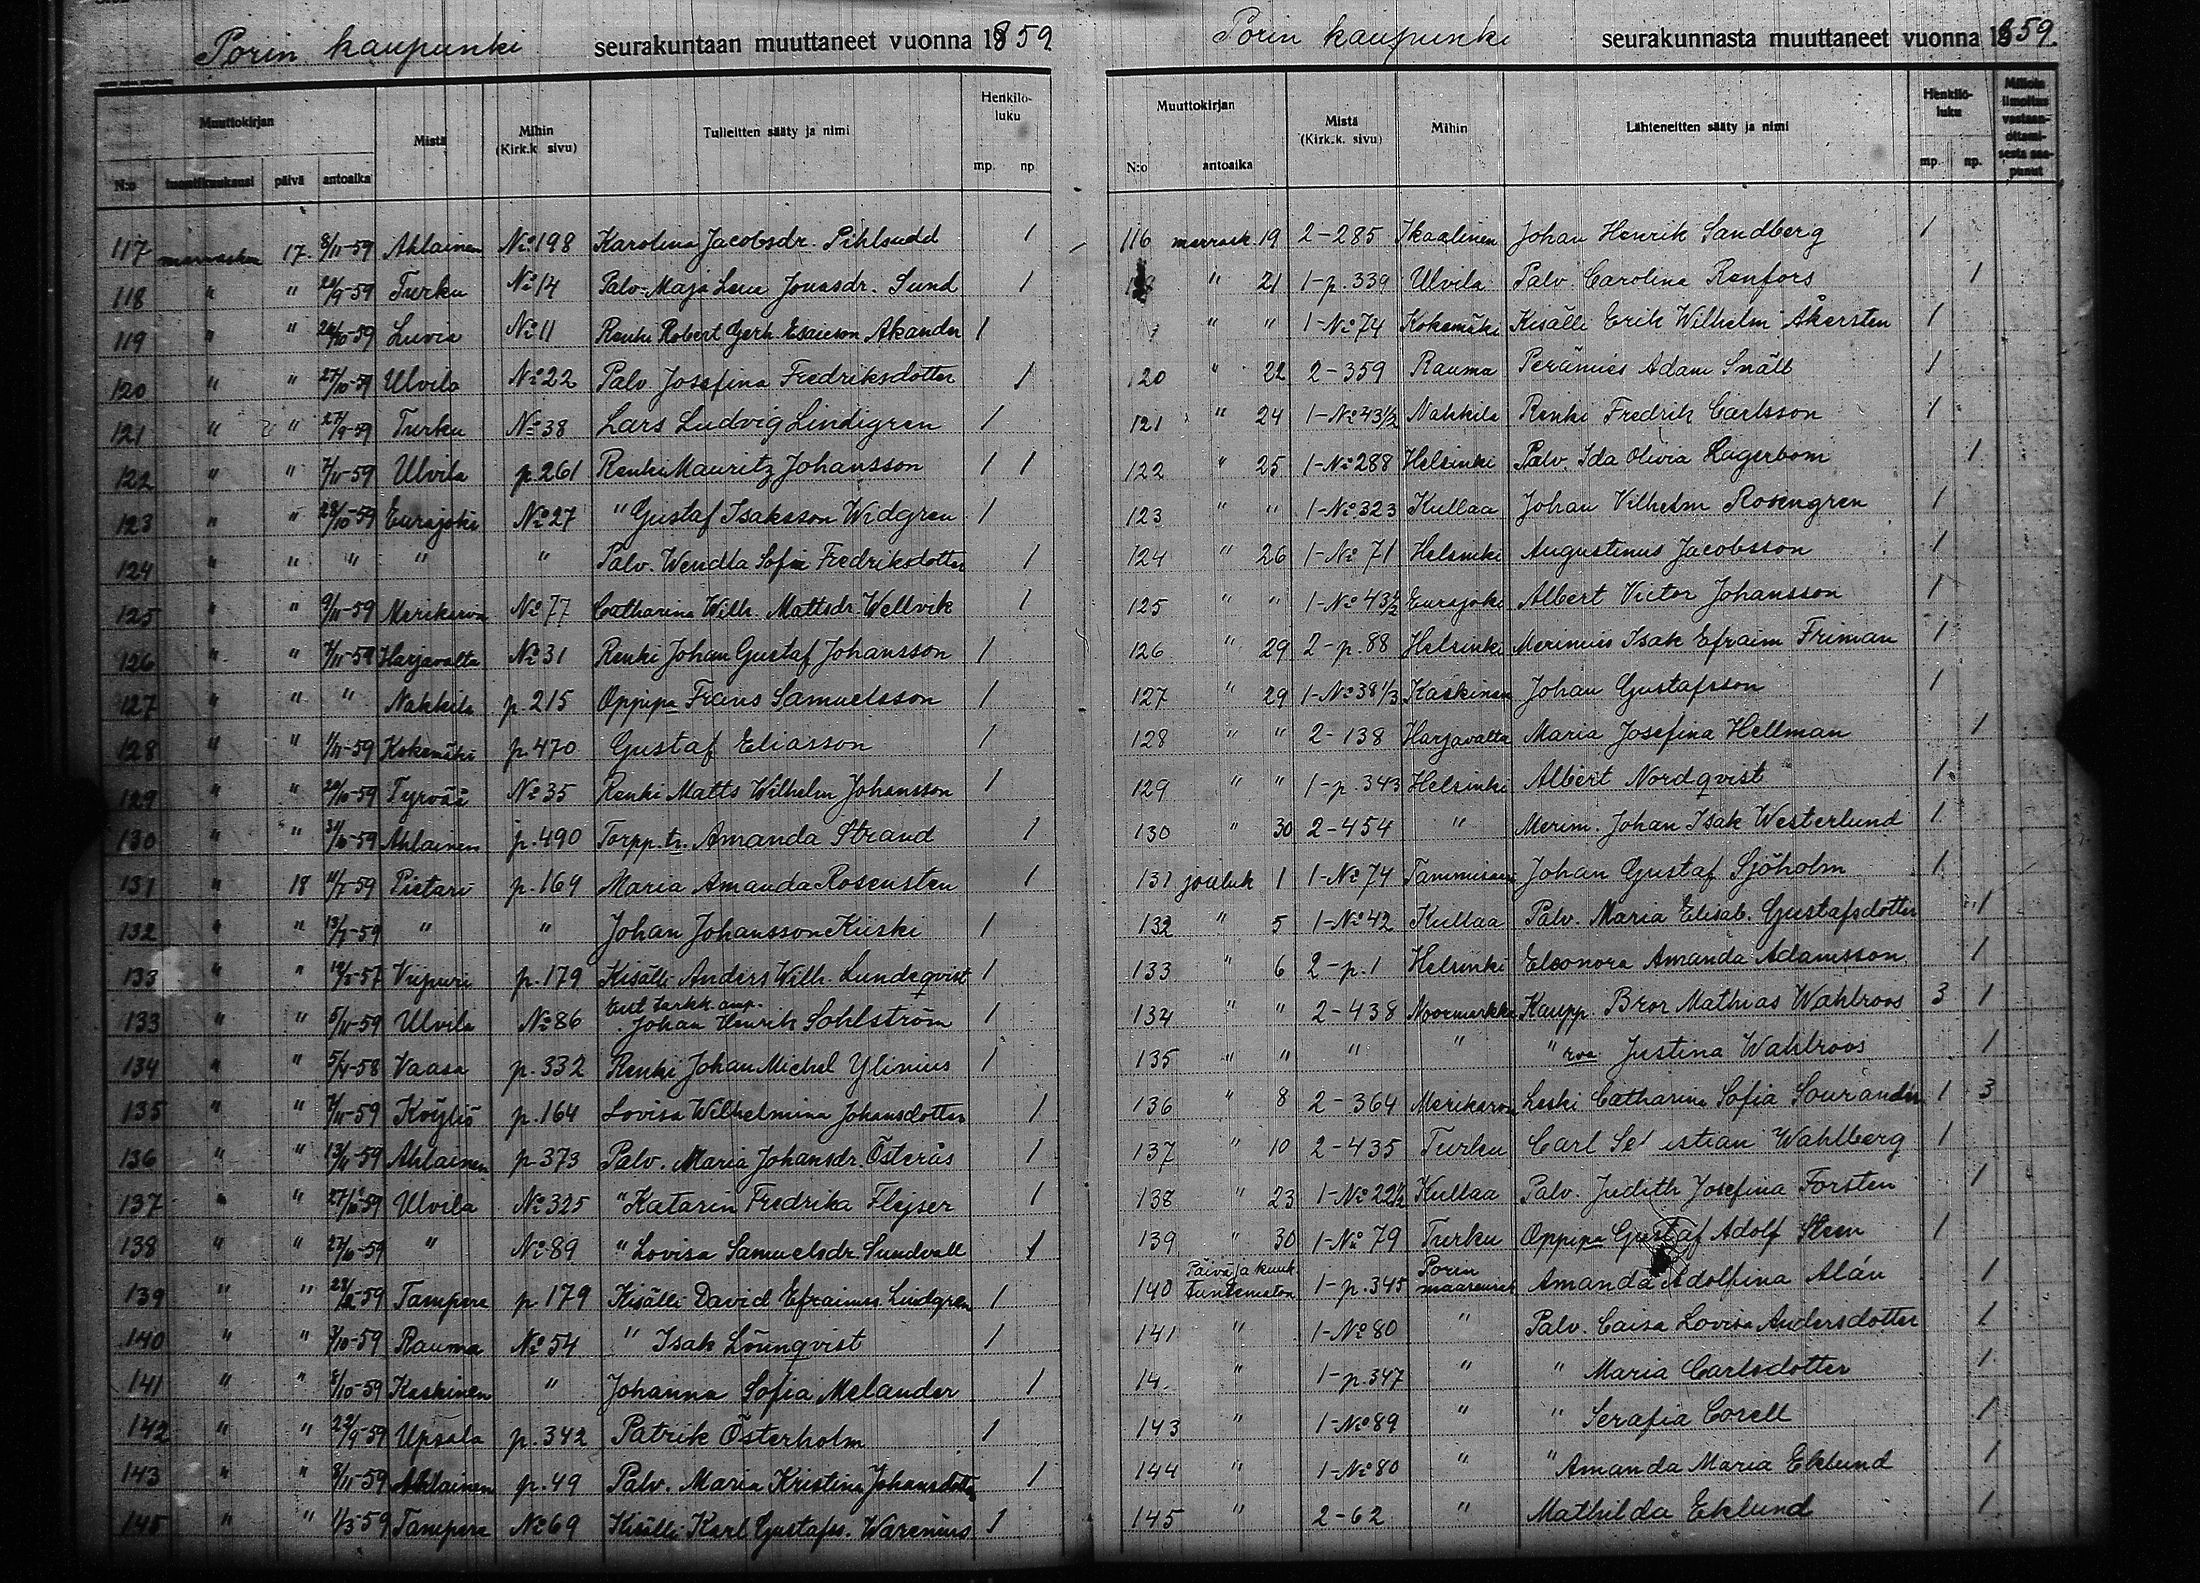 Porin kaupunki seurakuntaan muuttaneet vuonna 1859
Muuttokirjan Mistä Mihin (Kirk.k. sivu) Tulleitten sääty ja nimi Henkilö-luku
N:o tuontikuukausi päivä antoaika mp. np.
117 marraskn 17 8/11-59 Ahlainen No 198 Karolina Jacobsdr. Pihlsudd 1
118 " " 20/9-59 Turku No 14 Palv. Maja Lena Jonasdr. Sund 1
119 " " 24/10-59 Luvia No 11 Renki Robert Gerh. Esaieson Akander 1
120 " " 27/10-59 Ulvila No 22 Palv. Josefina Fredriksdotter 1
121 " " 27/9-59 Turku No 38 Lars Ludvig Lindigren 1
122 " " 7/11-59 Ulvila p.261 Renki Mauritz Johansson 1 1
123 " " 28/10-59 Eurajoki No 27 " Gustaf Isaksson Widgren 1
124 " " " " " Palv. Wendla Sofia Fredriksdotter 1
125 " " 9/11-59 Merikarvia No 77 Catharina Wilh. Mattsdr. Wellvik 1
126 " " 7/11-59 Harjavalta No 31 Renki Johan Gustaf Johansson 1
127 " " " Nakkila p.215 Oppipa Frans Samuelsson 1
128 " " 1/11-59 Kokemäki p.470 Gustaf Eliasson 1
129 " " 22/10-59 Tyrvää No 35 Renki Matts Wilhelm Johansson 1
130 " " 31/10-59 Ahlainen p.490 Torpp. tr. Amanda Strand 1
131 " 18 11/7-59 Pietari p.169 Maria Amanda Rosensten 1
132 " " 13/7-59 " " Johan Johansson Kiiski 1
133 " " 19/5-57 Viipuri p.179 Kisälli Anders Wilh. Lundeqvist 1
133 " " 5/11-59 Ulvila No 86 Ent tarkk. amp. Johan Henrik Sohlström 1
134 " " 5/4-58 Vaasa p.332 Renki Johan Michel Ylinius 1
135 " " 7/11-59 Köyliö p.164 Lovisa Wilhelmina Johansdotter 1
136 " " 13/11-59 Ahlainen p.373 Palv. Maria Johansdr. Österås 1
137 " " 27/10-59 Ulvila No 325 " Katarin Fredrika Flejser 1
138 " " 27/6-59 " No 89 " Lovisa Samuelsdr. Sundvall 1
139 " " Tampere p.179 Kisälli David Efraimss. Lindgren 1
140 " " 3/10-59 Rauma No 54 " Isak Lönnqvist 1
141 " " 8/10-59 Kaskinen " Johanna Sofia Melander 1
142 " " 22/9-59 Upsala p.342 Patrik Österholm 1
143 " " 8/11-59 Ahlainen p.49 Palv. Maria Kristina Johansdotter 1
145 " " 1/5-59 Tampere No 69 Kisälli Karl Gustafss. Warenius 1
Porin kaupunki seurakunnasta muuttaneet vuonna 1859.
Muuttokirjan Mistä (Kirk.k. sivu) Mihin Lähteneitten sääty ja nimi Henkilö-luku Milloin ilmoitus vastaan-ottami-sesta saa-punut
N:o antoaika mp. np.
116 marrask. 19 2-285 Ikaalinen Johan Henrik Sandberg 1
" 21 1-p.339 Ulvila Palv. Carolina Renfors 1
" " 1-No 74 Kokemäki Kisälli Erik Wilhelm Åkersten 1
120 " 22 2-359 Rauma Perämies Adam Snäll 1
121 " 24 1-No 43 1/2 Nakkila Renki Fredrik Carlsson 1
122 " 25 1-No 288 Helsinki Palv. Ida Olivia Lagerbom 1
123 " " 1-No 323 Kullaa Johan Vilhelm Rosengren 1
124 " 26 1-No 71 Helsinki Augustinus Jacobsson 1
125 " " 1-No 43 1/2 Eurajoki Albert Victor Johansson 1
126 " 29 2-p.88 Helsinki Merimies Isak Efraim Friman 1
127 " 29 1-No 38 1/3 Kaskinen Johan Gustafsson 1
128 " " 2-138 Harjavalta Maria Josefina Hellman 1
129 " " 1-p.343 Helsinki Albert Nordqvist 1
130 " 30 2-454 " Merim. Johan Isak Westerlund 1
131 jouluk 1 1-No 74 Tammisaari Johan Gustaf Sjöholm 1
132 " 5 1-No 42 Kullaa Palv. Maria Elisab. Gustafsdotter 1
133 " 6 2-p.1 Helsinki Eleonora Amanda Adamsson 1
134 " " 2-438 Noormarkku Kaupp. Bror Mathias Wahlroos 3 1
135 " " " " " rva Justina Wahlroos 1
136 " 8 2-364 Merikarvia Leski Catharina Sofia Sourander 1 3
137 " 10 2-435 Turku Carl Se istian Wahlberg 1
138 " 23 1-No 22 1/2 Kullaa Palv. Judith Josefina Forsten 1
139 " 30 1-No 79 Turku Oppipa Gustaf Adolf Sten 1
140 Päivä ja kuuk. tuntematon 1-p.345 Porin maaseurak Amanda Adolfina Alán 1
141 " 1-No 80 " Palv. Caisa Lovisa Andersdotter 1
14. " 1-p.347 " " Maria Carlsdotter 1
143 " 1-No 89 " " Serafia Corell 1
144 " 1-No 80 " " Amanda Maria Eklund 1
145 " 2-62 " Mathilda Eklund 1